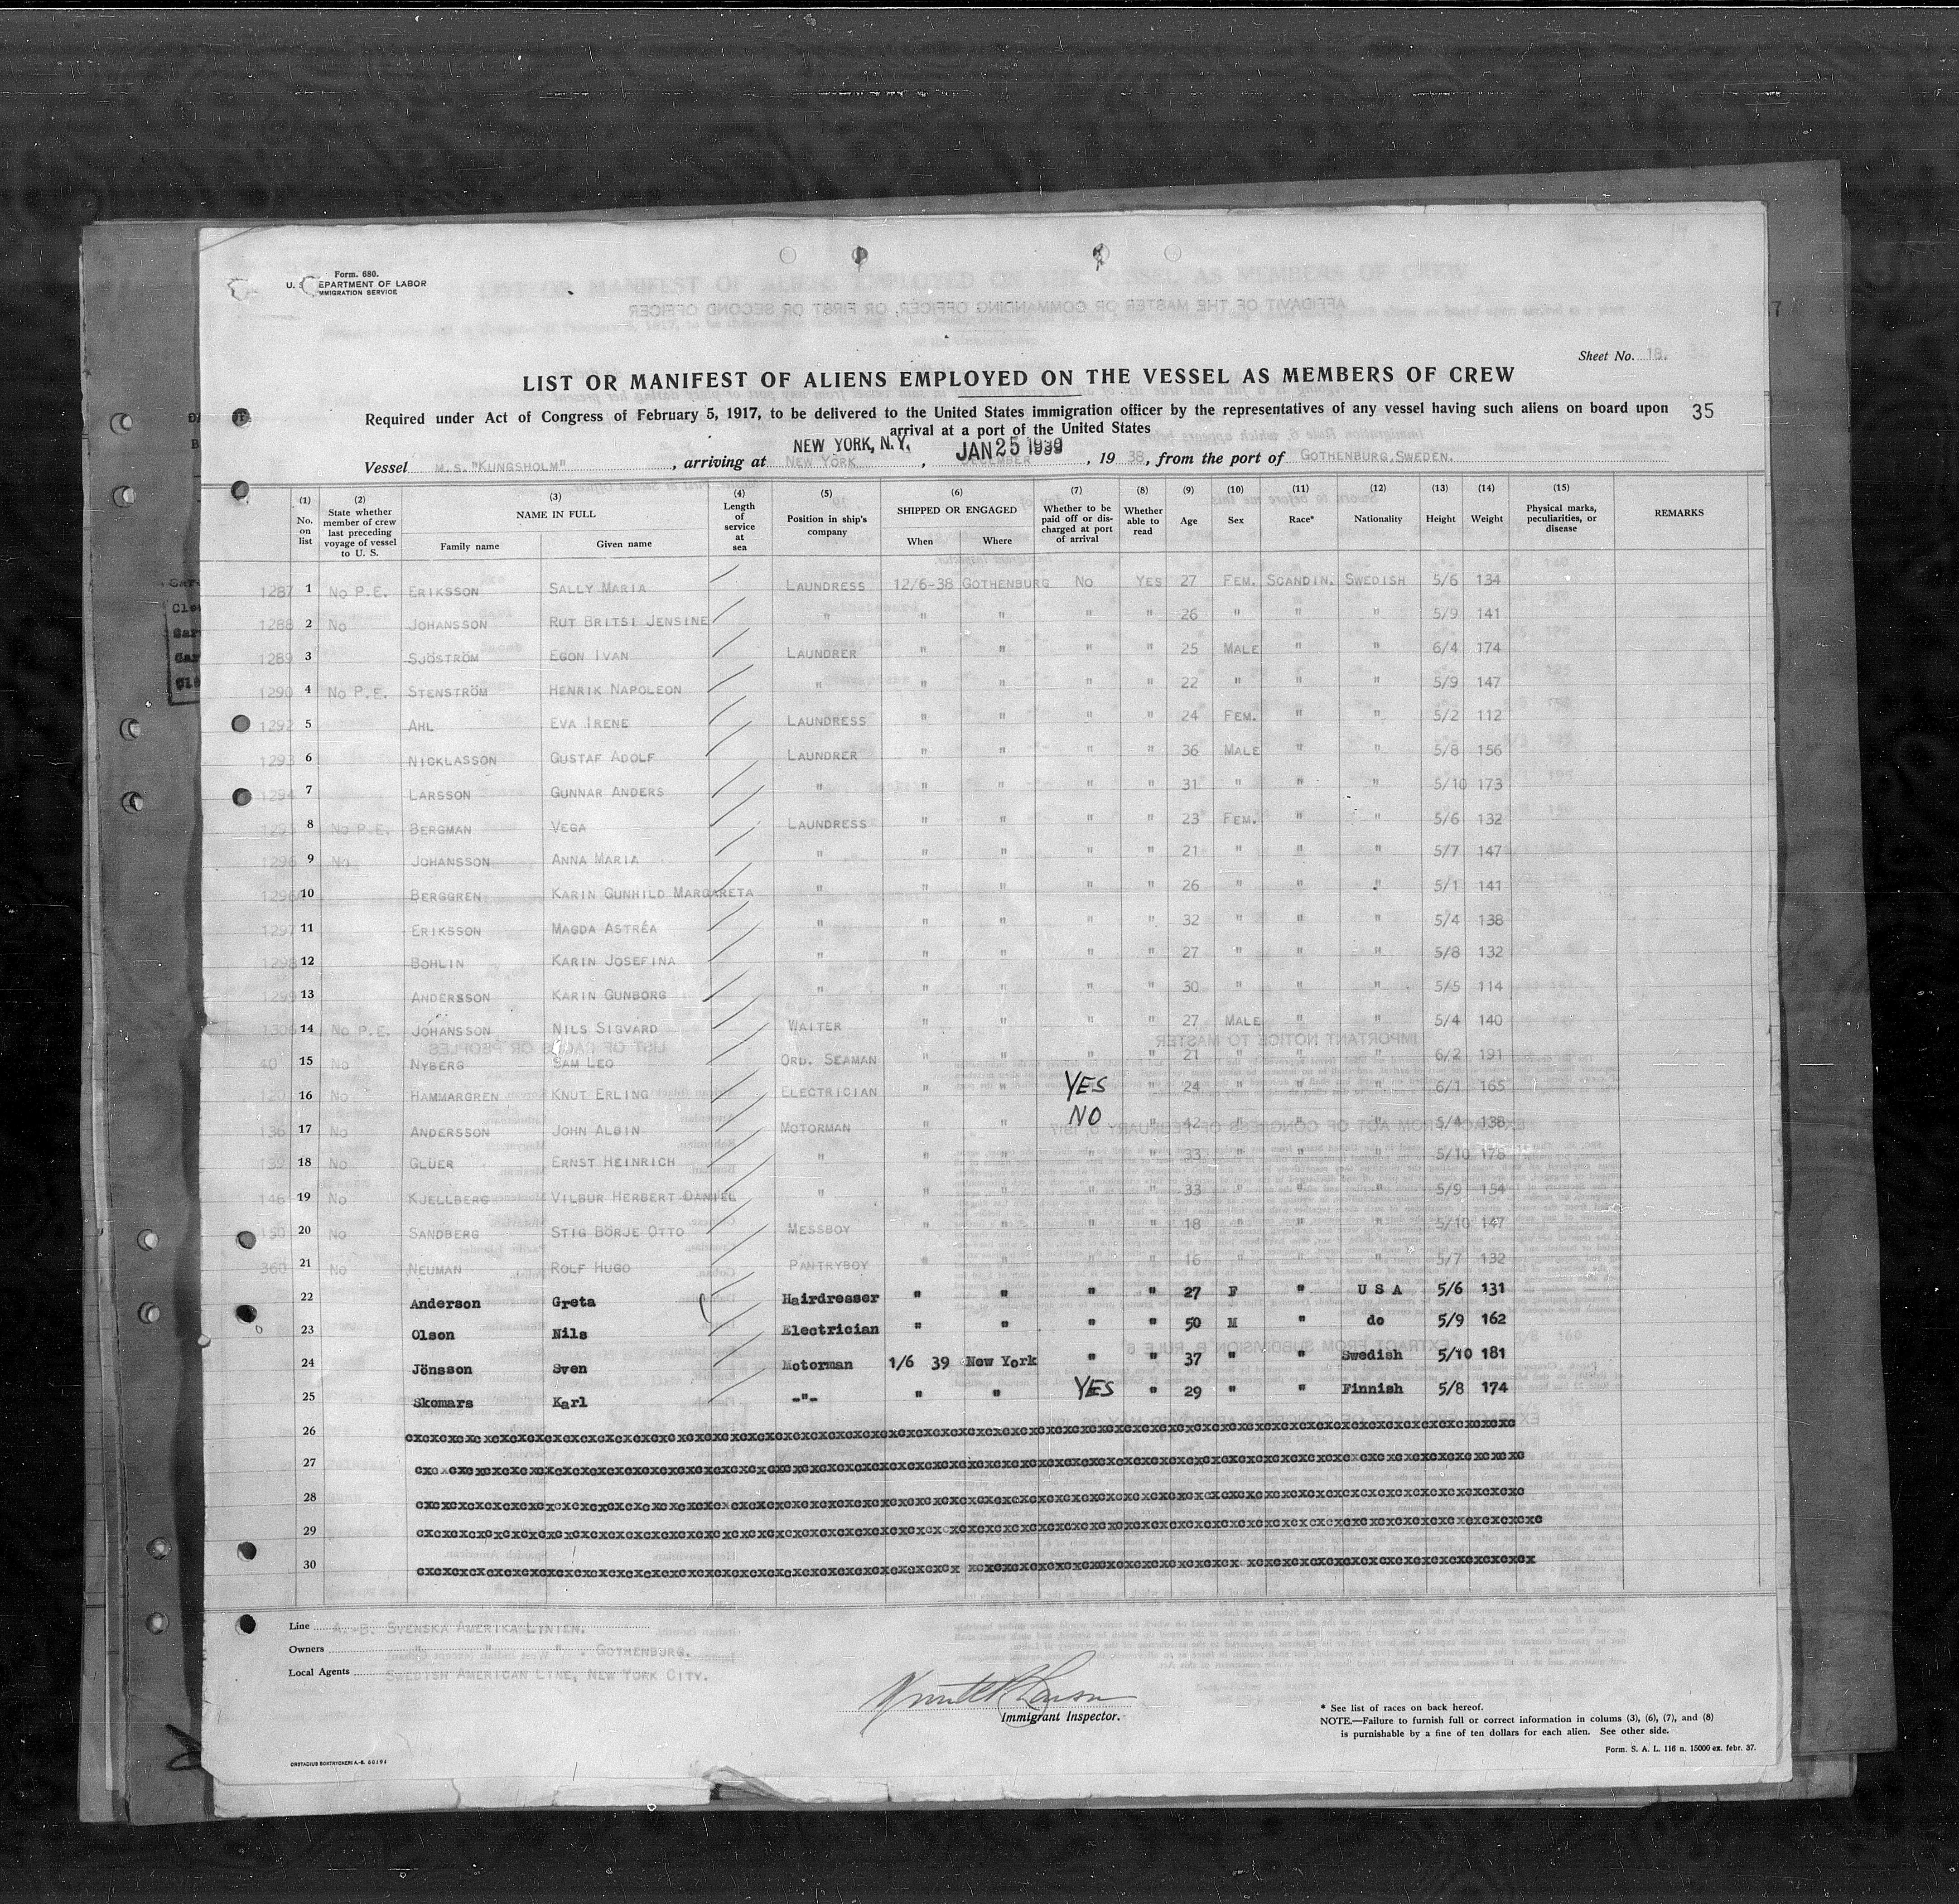 Form. 680.
U. S. DEPARTMENT OF LABOR
IMMIGRATION SERVICE
Sheet No. 18.
LIST OR MANIFEST OF ALIENS EMPLOYED ON THE VESSEL AS MEMBERS OF CREW
Required under Act of Congress of February 5, 1917, to be delivered to the United States immigration officer by the representatives of any vessel having such aliens on board upon 35
arrival at a port of the United States
NEW YORK, N.Y. JAN 25 1939
Vessel M.S. "KUNGSHOLM", arriving at NEW YORK, DECEMBER, 19 38, from the port of GOTHENBURG, SWEDEN.
(1) No. on list (2) State whether member of crew last preceding voyage of vessel to U. S. (3) NAME IN FULL Family name Given name (4) Length of service at sea (5) Position in ship's company (6) SHIPPED OR ENGAGED When Where (7) Whether to be paid off or discharged at port of arrival (8) Whether able to read (9) Age (10) Sex (11) Race* (12) Nationality (13) Height (14) Weight (15) Physical marks, peculiarities, or disease REMARKS
1287 1 NO P.E. ERIKSSON SALLY MARIA LAUNDRESS 12/6-38 GOTHENBURG NO YES 27 FEM. SCANDIN. SWEDISH 5/6 134
1288 2 NO JOHANSSON RUT BRITSI JENSINE " " " " " 26 " " " 5/9 141
1289 3 SJÖSTRÖM EGON IVAN LAUNDRER " " " " 25 MALE " " 6/4 174
1290 4 NO P.E. STENSTRÖM HENRIK NAPOLEON " " " " " 22 " " " 5/9 147
1292 5 AHL EVA IRENE LAUNDRESS " " " " 24 FEM. " " 5/2 112
1293 6 NICKLASSON GUSTAF ADOLF LAUNDRER " " " " 36 MALE " " 5/8 156
1294 7 LARSSON GUNNAR ANDERS " " " " " 31 " " " 5/10 173
1295 8 NO P.E. BERGMAN VEGA LAUNDRESS " " " " 23 FEM. " " 5/6 132
1296 9 NO JOHANSSON ANNA MARIA " " " " " 21 " " " 5/7 147
1296 10 BERGGREN KARIN GUNHILD MARGARETA " " " " " 26 " " " 5/1 141
1297 11 ERIKSSON MAGDA ASTRÉA " " " " " 32 " " " 5/4 138
1298 12 BOHLIN KARIN JOSEFINA " " " " " 27 " " " 5/8 132
1299 13 ANDERSSON KARIN GUNBORG " " " " " 30 " " " 5/5 114
1306 14 NO P.E. JOHANSSON NILS SIGVARD WAITER " " " " 27 MALE " " 5/4 140
40 15 NO NYBERG SAM LEO ORD. SEAMAN " " " " 21 " " " 6/2 191
120 16 NO HAMMARGREN KNUT ERLING ELECTRICIAN " " YES " 24 " " " 6/1 165
136 17 NO ANDERSSON JOHN ALBIN MOTORMAN " " NO " 42 " " " 5/4 138
139 18 NO GLÜER ERNST HEINRICH " " " " " 33 " " " 5/10 178
146 19 NO KJELLBERG VILBUR HERBERT DANIEL " " " " " 33 " " " 5/9 154
150 20 NO SANDBERG STIG BÖRJE OTTO MESSBOY " " " " 18 " " " 5/10 147
360 21 NO NEUMAN ROLF HUGO PANTRYBOY " " " " 16 " " " 5/7 132
22 Anderson Greta Hairdresser " " " " 27 F " U S A 5/6 131
23 Olson Nils Electrician " " " " 50 M " do 5/9 162
24 Jönsson Sven Motorman 1/6 39 New York " " 37 " " Swedish 5/10 181
25 Skomars Karl -"- " " YES " 29 " " Finnish 5/8 174
26
27
28
29
30
Line A.-B. SVENSKA AMERIKA LINIEN.
Owners " " " . GOTHENBURG.
Local Agents SWEDISH AMERICAN LINE, NEW YORK CITY.
Immigrant Inspector.
* See list of races on back hereof.
NOTE.—Failure to furnish full or correct information in colums (3), (6), (7), and (8)
is purnishable by a fine of ten dollars for each alien. See other side.
Form. S. A. L. 116 n. 15000 ex. febr. 37.